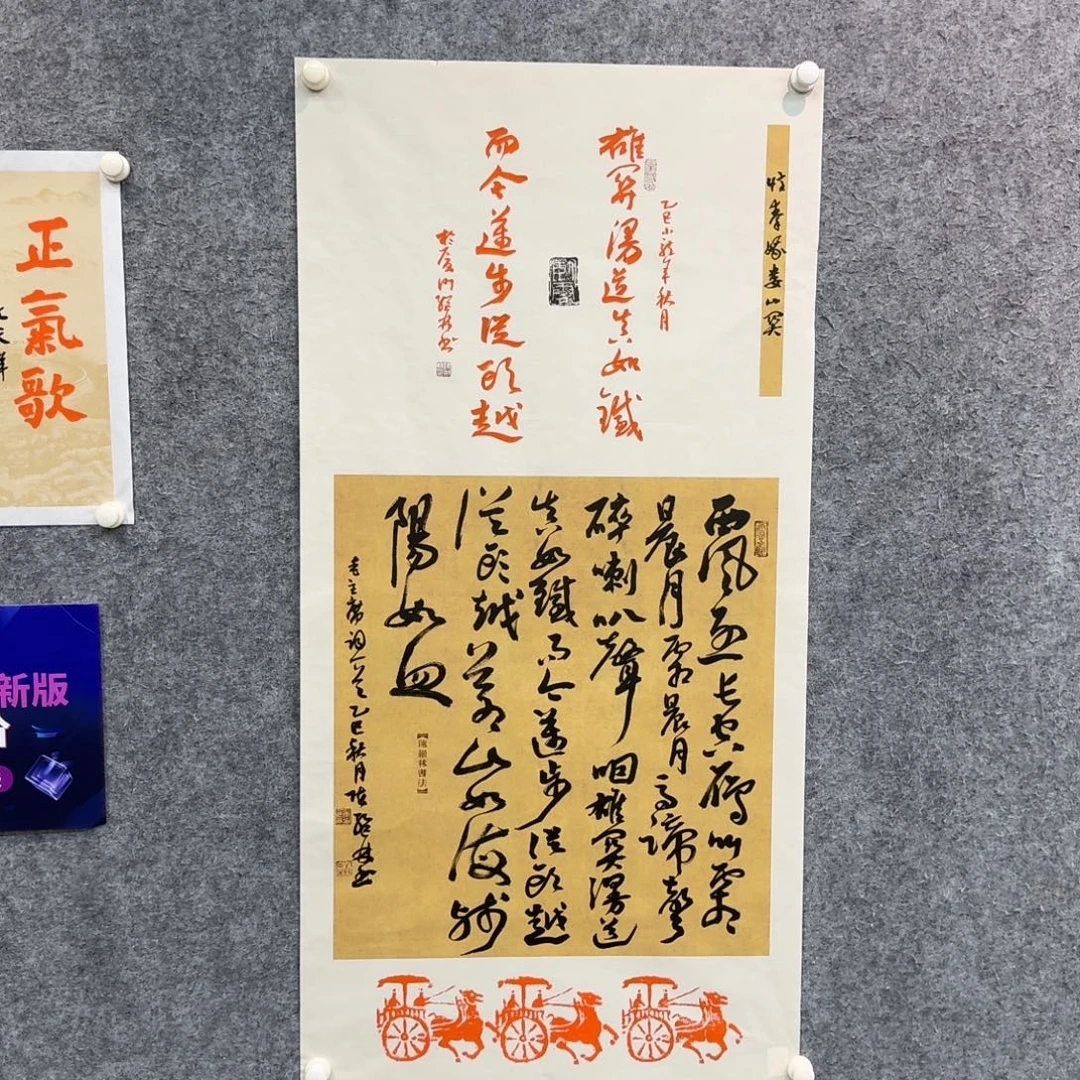 忆秦娥娄山关
雄關漫道真如鐵
乙巳小龍年秋月
而今邁步從頭越
於廈門 書
西風烈長空雁叫霜
晨月霜晨月馬蹄聲
碎喇叭聲咽雄關漫道
真如鐵而今邁步從頭越
從頭越蒼山如海殘
陽如血
毛主席詞一首乙巳秋月陳 林書
【陳 林書法】
正氣歌
文天祥
新版